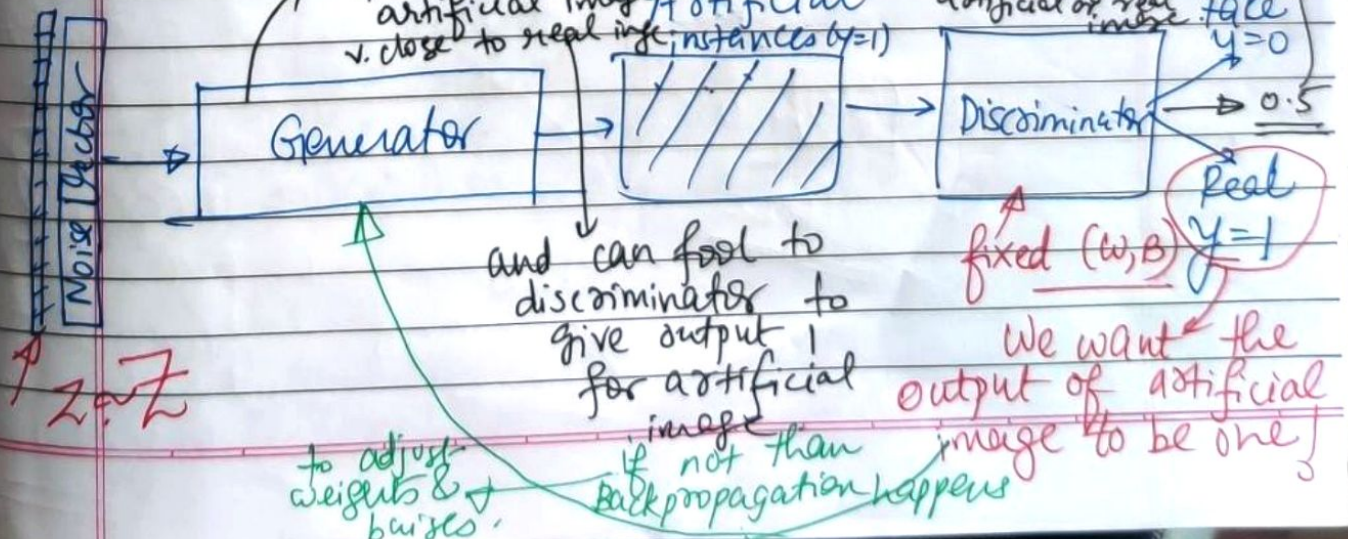 artificial
v. close to real
instances (y=1)
face
y=0
0.5
Noise Vector
Generator
Discriminator
Real
y=1
fixed (W,B)
and can fool to
discriminator to
give output 1
for artificial
image
We want the
output of artificial
image to be one
z~Z
to adjust
weights &
baises.
if not than
Backpropagation happens